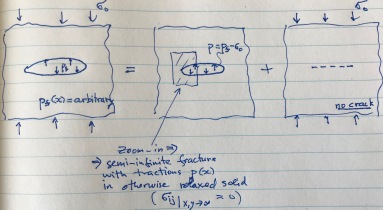 σ₀
σ₀
p_f
p_f(x)=arbitrary
=
p=p_f-σ₀
+
no crack
Zoom-in ⇒
⇒ semi-infinite fracture
with tractions p(x)
in otherwise relaxed solid
(σ_ij|x,y→∞ = 0)